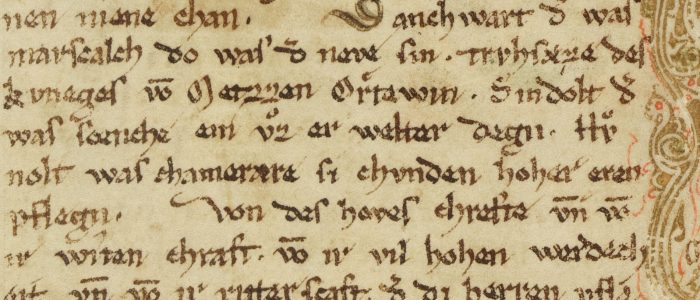 nen niene chan. Danchwart d' was
marscalch do was d' neve sin. trvhsæze des
kvneges vō Metzzen Ortewin. Sindolt d'
was scenche ein vz er welter degn. Hv
nolt was chamerære si chvnden hoher eren
pflegn. Von des hoves chrefte vn̄ vō
ir witen chraft. vō ir vil hohen werdech
eit vn̄ vō ir ritterscaft. d' di herren pfla